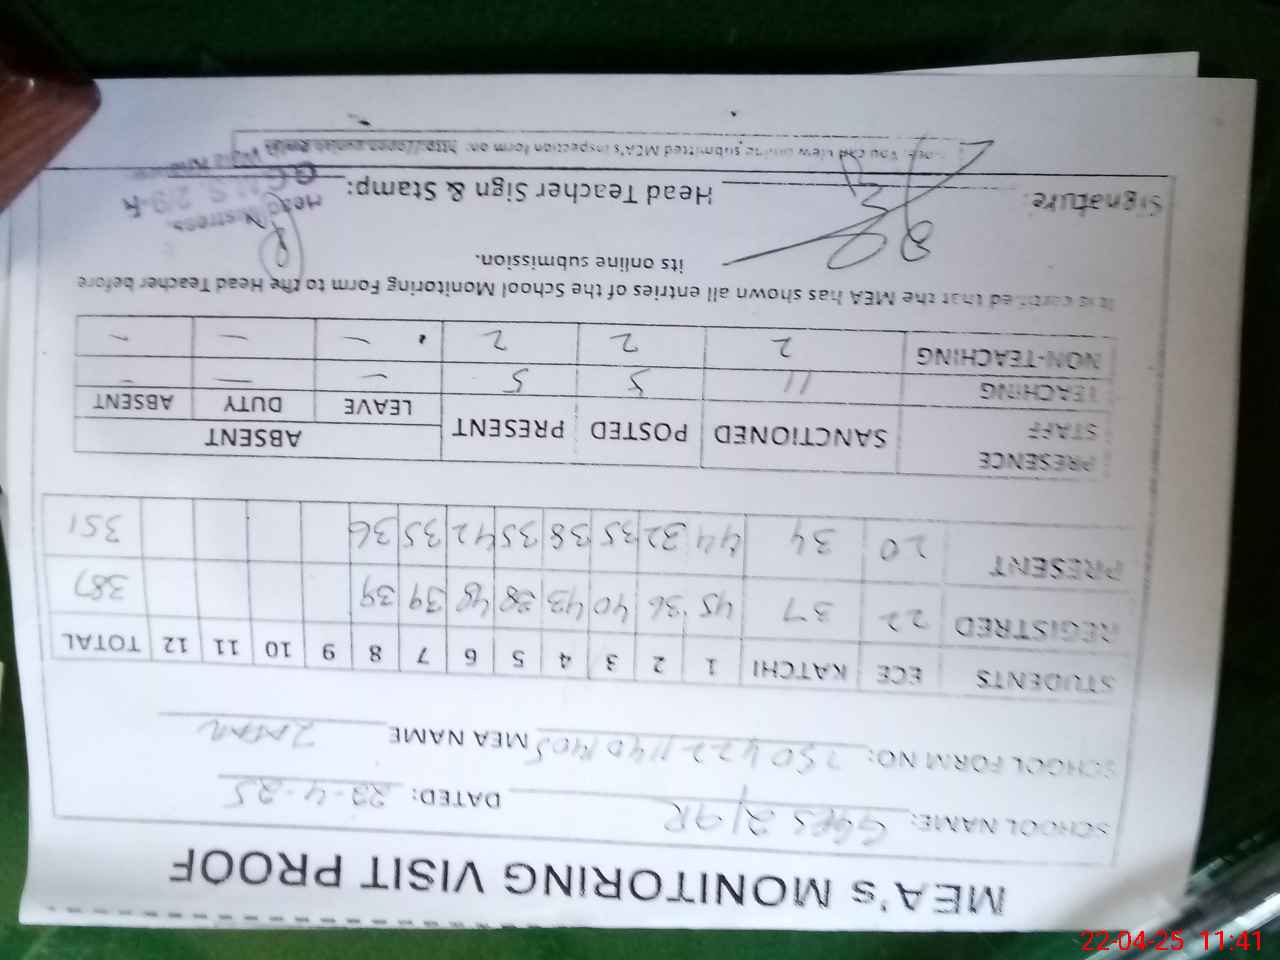 MEA's MONITORING VISIT PROOF
SCHOOL NAME: GGES 2/9R DATED: 22-4-25
SCHOOL FORM NO: 250422 1140 1405 MEA NAME
STUDENTS ECE KATCHI 1 2 3 4 5 6 7 8 9 10 11 12 TOTAL
REGISTRED 22 37 45 36 40 43 38 48 39 39 387
PRESENT 20 34 44 32 35 38 35 42 35 36 351
PRESENCE STAFF SANCTIONED POSTED PRESENT ABSENT
LEAVE DUTY ABSENT
TEACHING 11 5 5 - - -
NON-TEACHING 2 2 2 - - -
It is certified that the MEA has shown all entries of the School Monitoring Form to the Head Teacher before
its online submission.
Signature: Head Teacher Sign & Stamp:
Head Mistress
You can view online submitted MEA's inspection form on: http://open.punjab.gov.pk
22-04-25 11:41